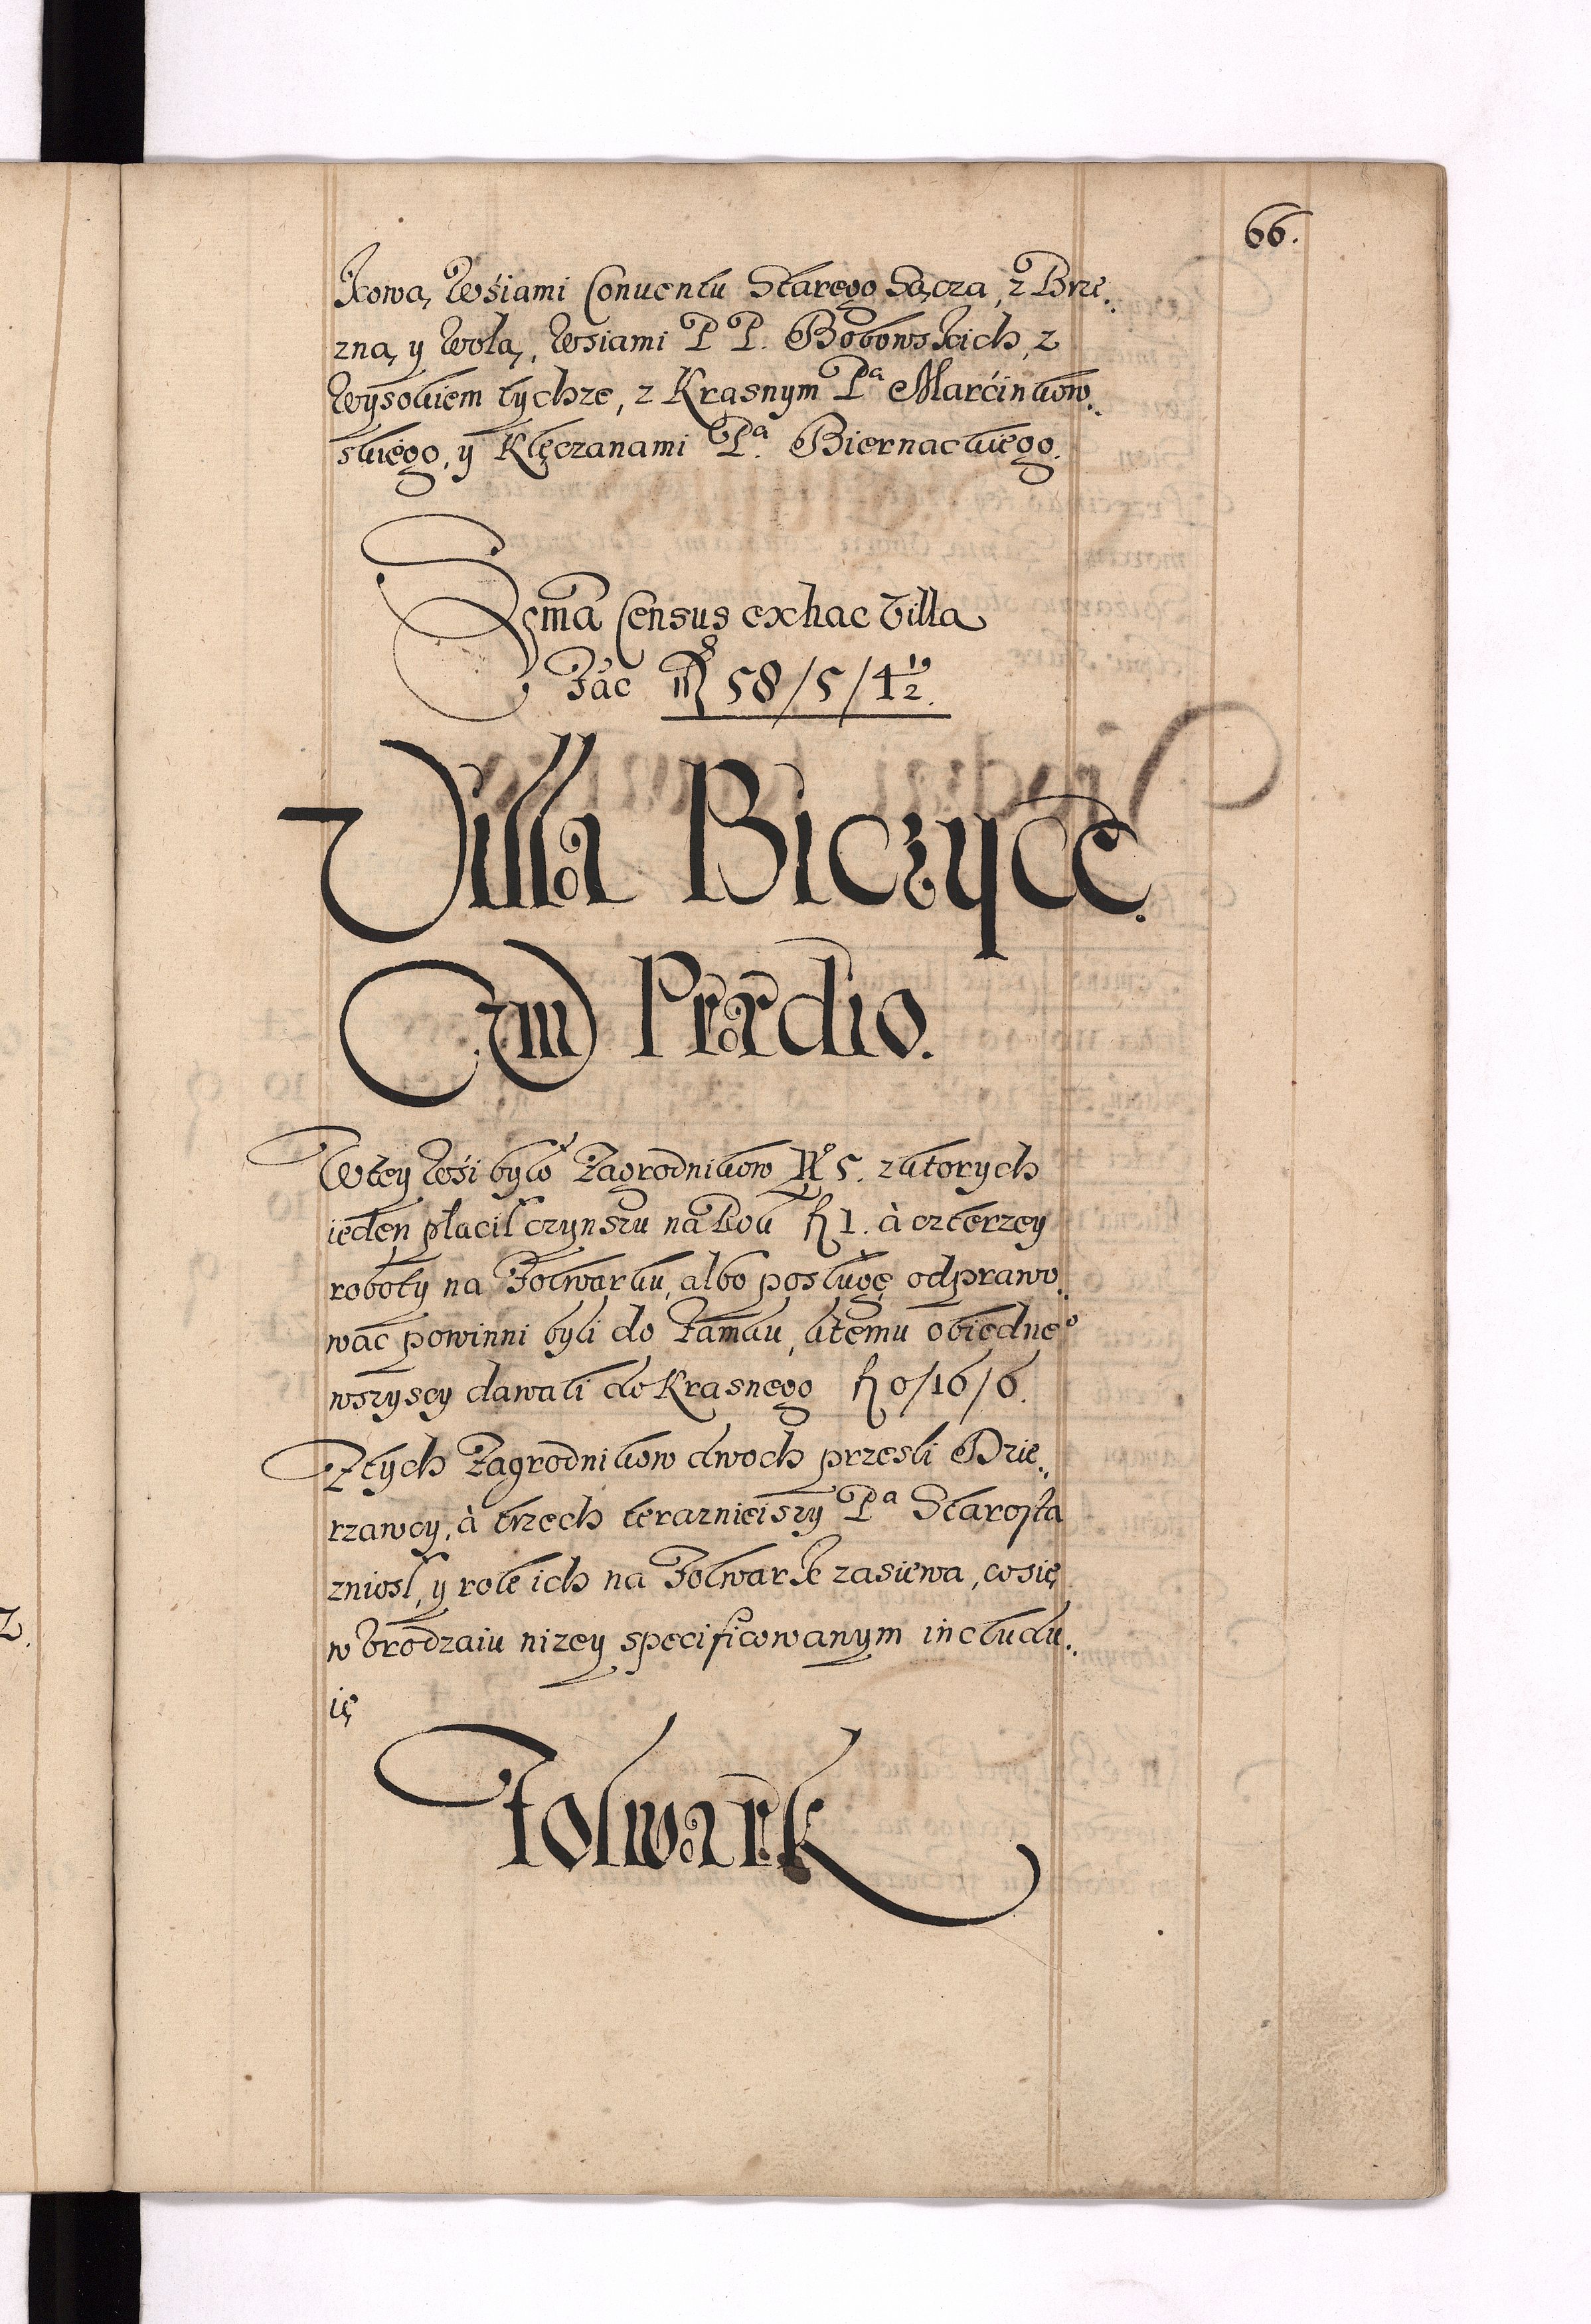 66.
kową, Wsiami Conuentu Starego Sącza, z Brze.
zną, y Wolą, Wsiami P P. Bobowskich, z
Wysokiem tychze, z Krasnym Pa Marcinkow.
skiego, y Klęczanami Pa. Biernackiego.
Sum̃a Census ex hac Villa
Fac 58/5/4 1/2.
Villa Biczyce
Cum Prædio.
W tey Wśi było Zagrodnikow No 5. z ktorych
ieden płacił czynszu na Rok fl 1. à czterzey
roboty na Folwarku, albo posługę odprawo.
wac powinni byli do Zamku, k temu obiedneo
wszyscy dawali do Krasnego fl 0/16/6.
Z tych Zagrodnikow dwoch przesli Dzie.
rzawcy, à trzech teraznieiszy Pa Starosta
zniosł, y role ich na Folwark zasiewa, co się
w Vrodzaiu nizey specificowanym includu.
ię
Folwark